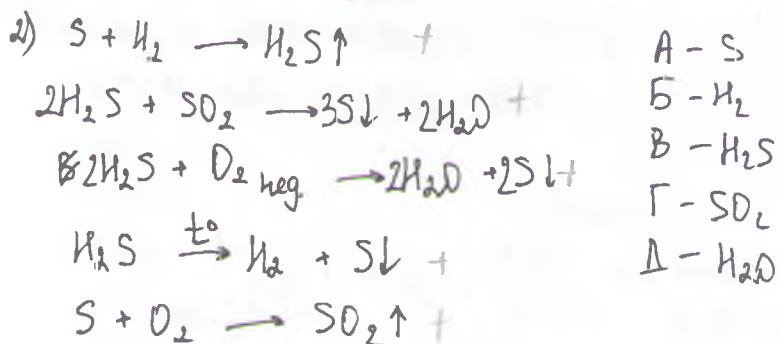 2) S + H₂ → H₂S↑ +
2H₂S + SO₂ → 3S↓ + 2H₂O +
2H₂S + O₂ нед. → 2H₂O + 2S↓ +
H₂S t°→ H₂ + S↓ +
S + O₂ → SO₂↑ +
А – S
Б – H₂
В – H₂S
Г – SO₂
Д – H₂O